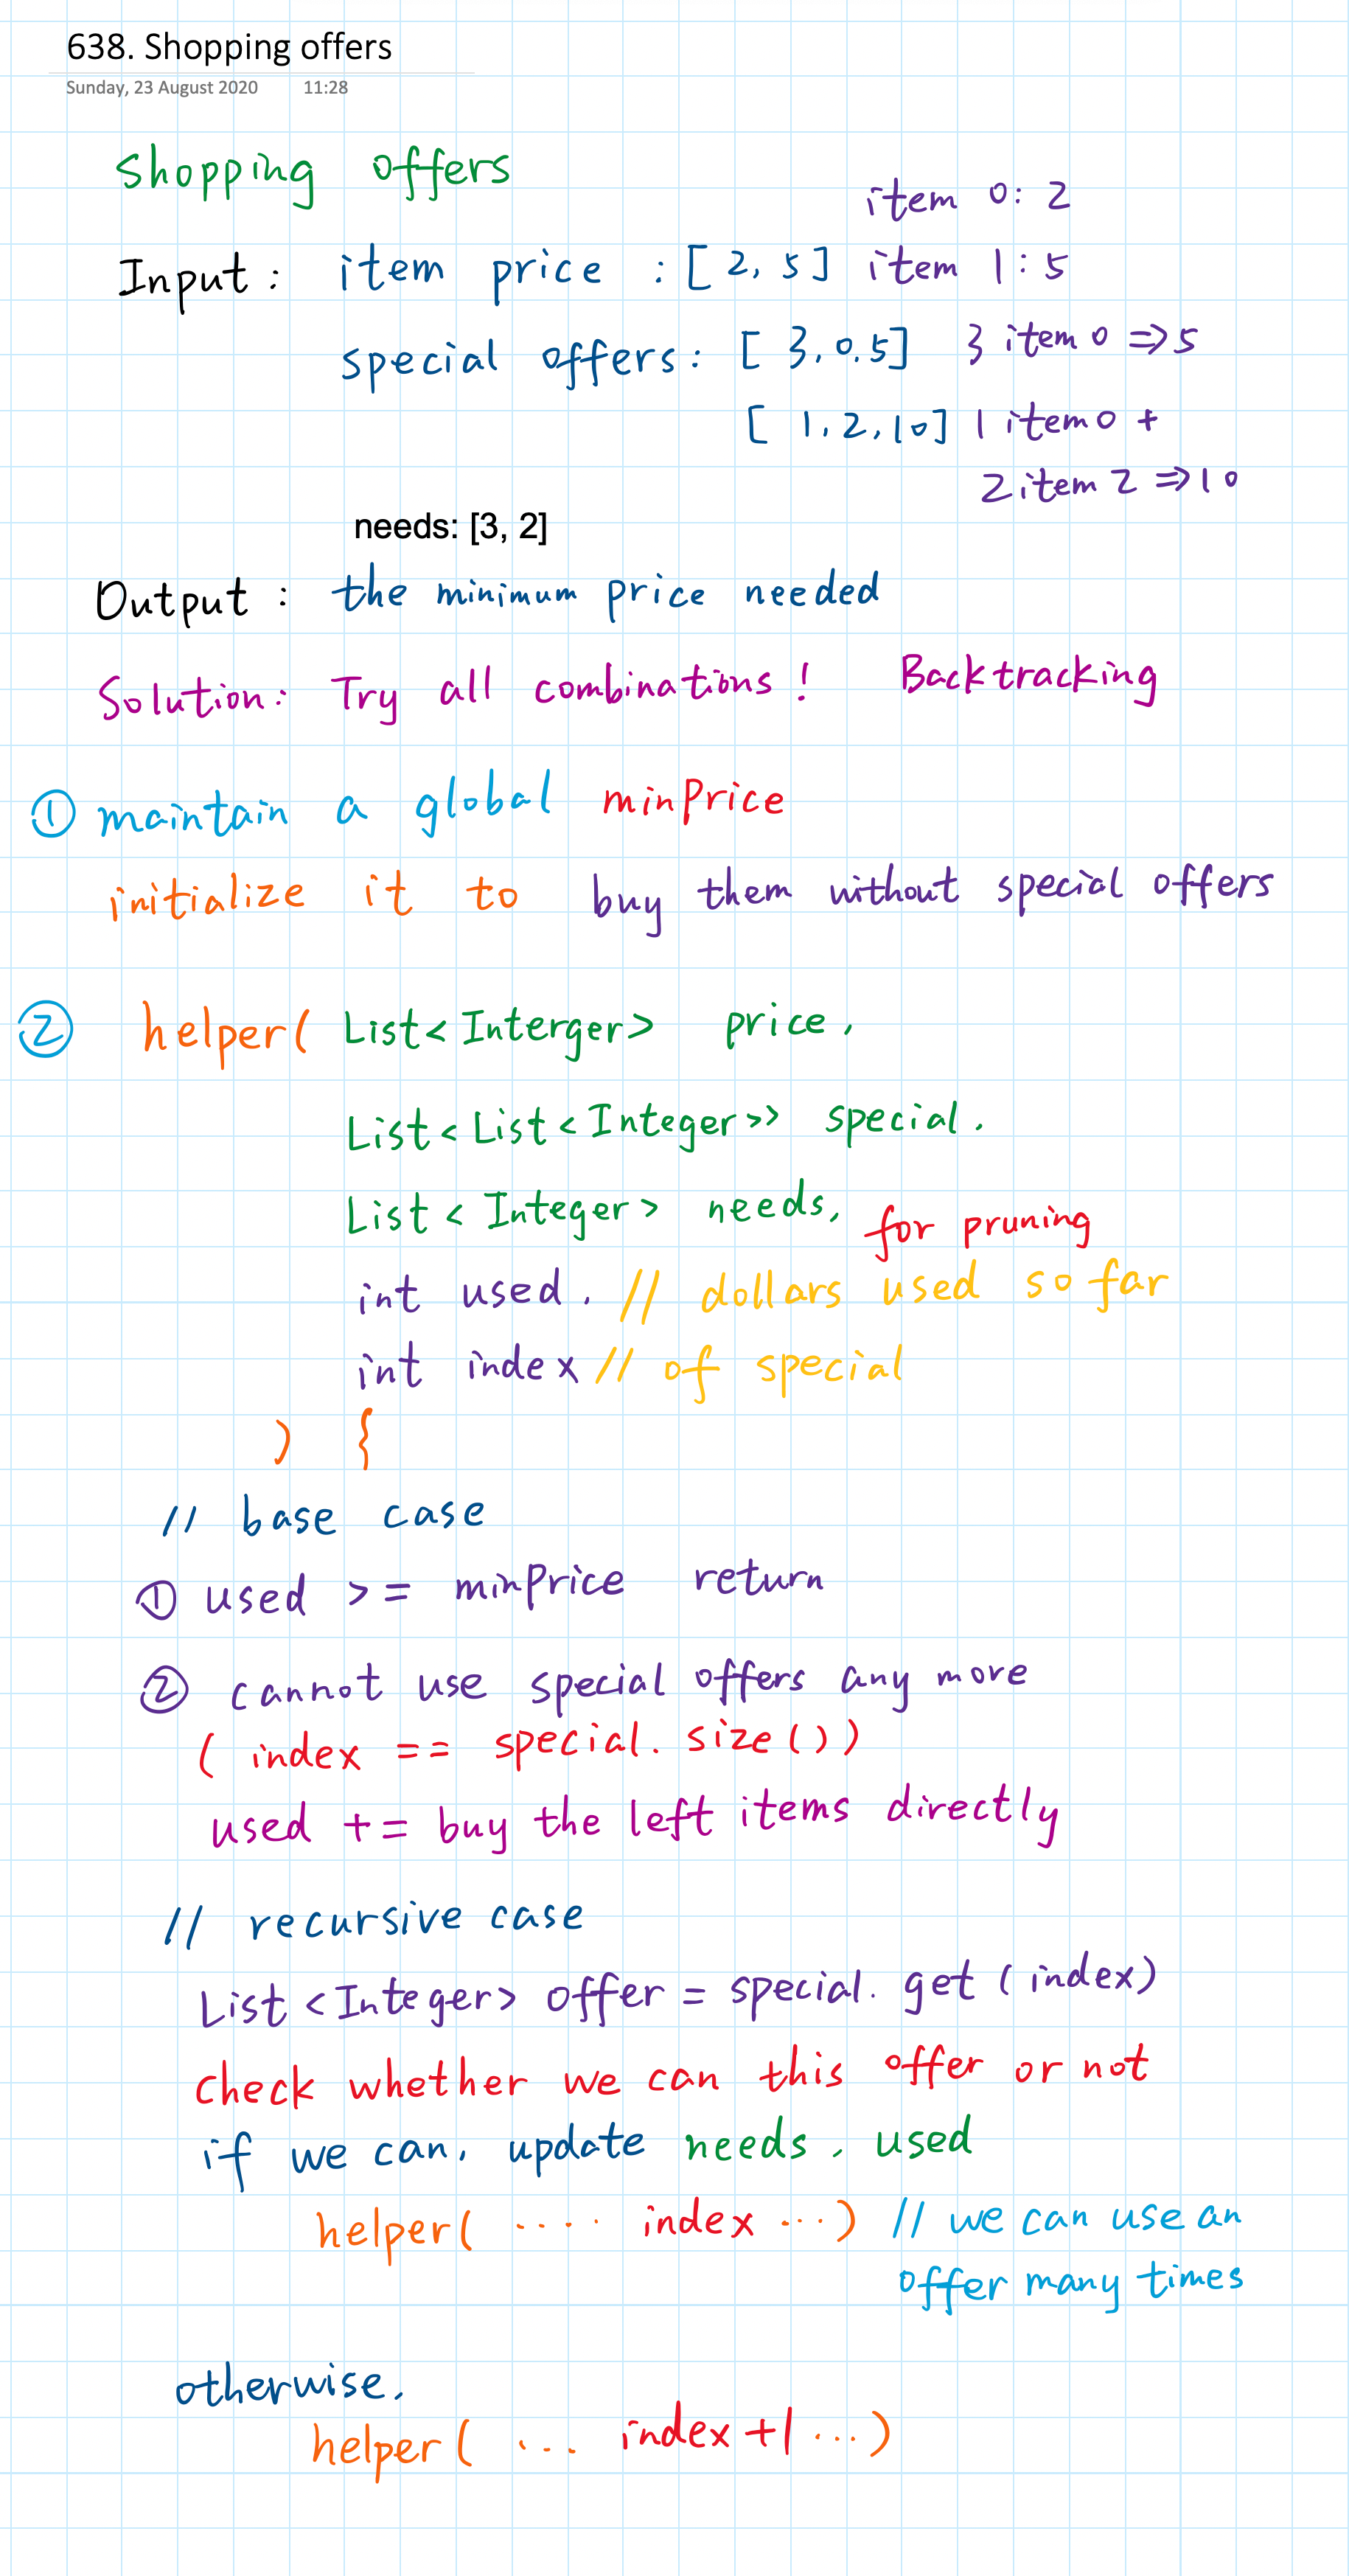 638. Shopping offers
Sunday, 23 August 2020 11:28
Shopping offers
item 0: 2
Input: item price : [2, 5] item 1: 5
special offers: [3, 0, 5] 3 item 0 => 5
[1, 2, 10] 1 item 0 +
2 item 2 => 10
needs: [3, 2]
Output: the minimum price needed
Solution: Try all combinations! Backtracking
① maintain a global minPrice
initialize it to buy them without special offers
② helper( List<Interger> price,
List<List<Integer>> special,
List<Integer> needs,
for pruning
int used, // dollars used so far
int index // of special
) {
// base case
① used >= minPrice return
② cannot use special offers any more
( index == special.size())
used += buy the left items directly
// recursive case
List<Integer> offer = special.get(index)
check whether we can this offer or not
if we can, update needs, used
helper( .... index ...) // we can use an
offer many times
otherwise,
helper( ... index+1 ...)